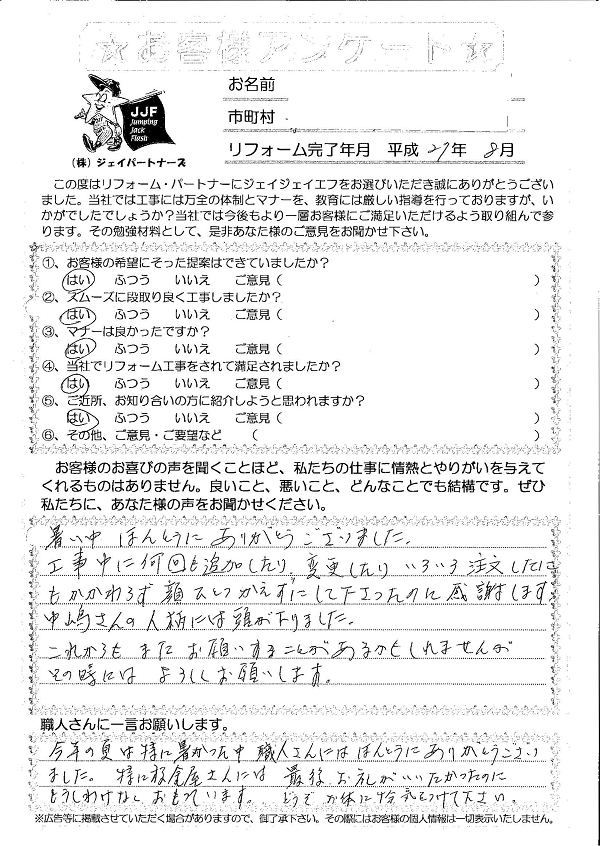 ☆お客様アンケート☆
JJF
Jumping
Jack
Flash
(株) ジェイパートナーズ
お名前
市町村
リフォーム完了年月 平成 27年 8月
この度はリフォーム・パートナーにジェイジェイエフをお選びいただき誠にありがとうござい
ました。当社では工事には万全の体制とマナーを、教育には厳しい指導を行っておりますが、い
かがでしたでしょうか？当社では今後もより一層お客様にご満足いただけるよう取り組んで参
ります。その勉強材料として、是非あなた様のご意見をお聞かせ下さい。
①、お客様の希望にそった提案はできていましたか？
はい ふつう いいえ ご意見（ ）
②、スムーズに段取り良く工事しましたか？
はい ふつう いいえ ご意見（ ）
③、マナーは良かったですか？
はい ふつう いいえ ご意見（ ）
④、当社でリフォーム工事をされて満足されましたか？
はい ふつう いいえ ご意見（ ）
⑤、ご近所、お知り合いの方に紹介しようと思われますか？
はい ふつう いいえ ご意見（ ）
⑥、その他、ご意見・ご要望など （ ）
お客様のお喜びの声を聞くことほど、私たちの仕事に情熱とやりがいを与えて
くれるものはありません。良いこと、悪いこと、どんなことでも結構です。ぜひ
私たちに、あなた様の声をお聞かせください。
暑い中 ほんとうに ありがとうございました。
工事中に何回も追加したり、変更したり いろいろ注文したに
もかかわらず顔ひとつかえずにして下さったのに感謝します
中嶋さんの人柄には頭が下りました。
これからも またお願いすることがあるかもしれませんが
その時には よろしくお願いします。
職人さんに一言お願いします。
今年の夏は特に暑かった中 職人さんには ほんとうにありがとうござい
ました。特に板金屋さんには 最後 お礼がいいたかったのに
もうしわけなく おもっています。どうぞ お体に 気をつけて下さい。
※広告等に掲載させていただく場合がありますので、御了承下さい。その際にはお客様の個人情報は一切表示いたしません。